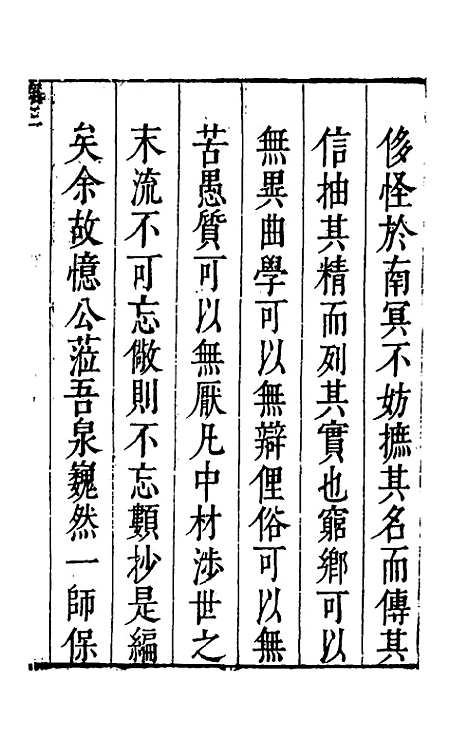 侈怪於南冥不妨摭其名而傳其
信抽其精而列其實也窮鄉可以
無異曲學可以無辯俚俗可以無
苦愚質可以無厭凡中材涉世之
末流不可忘儆則不忘顭抄是編
矣余故憶公蒞吾泉巍然一師保